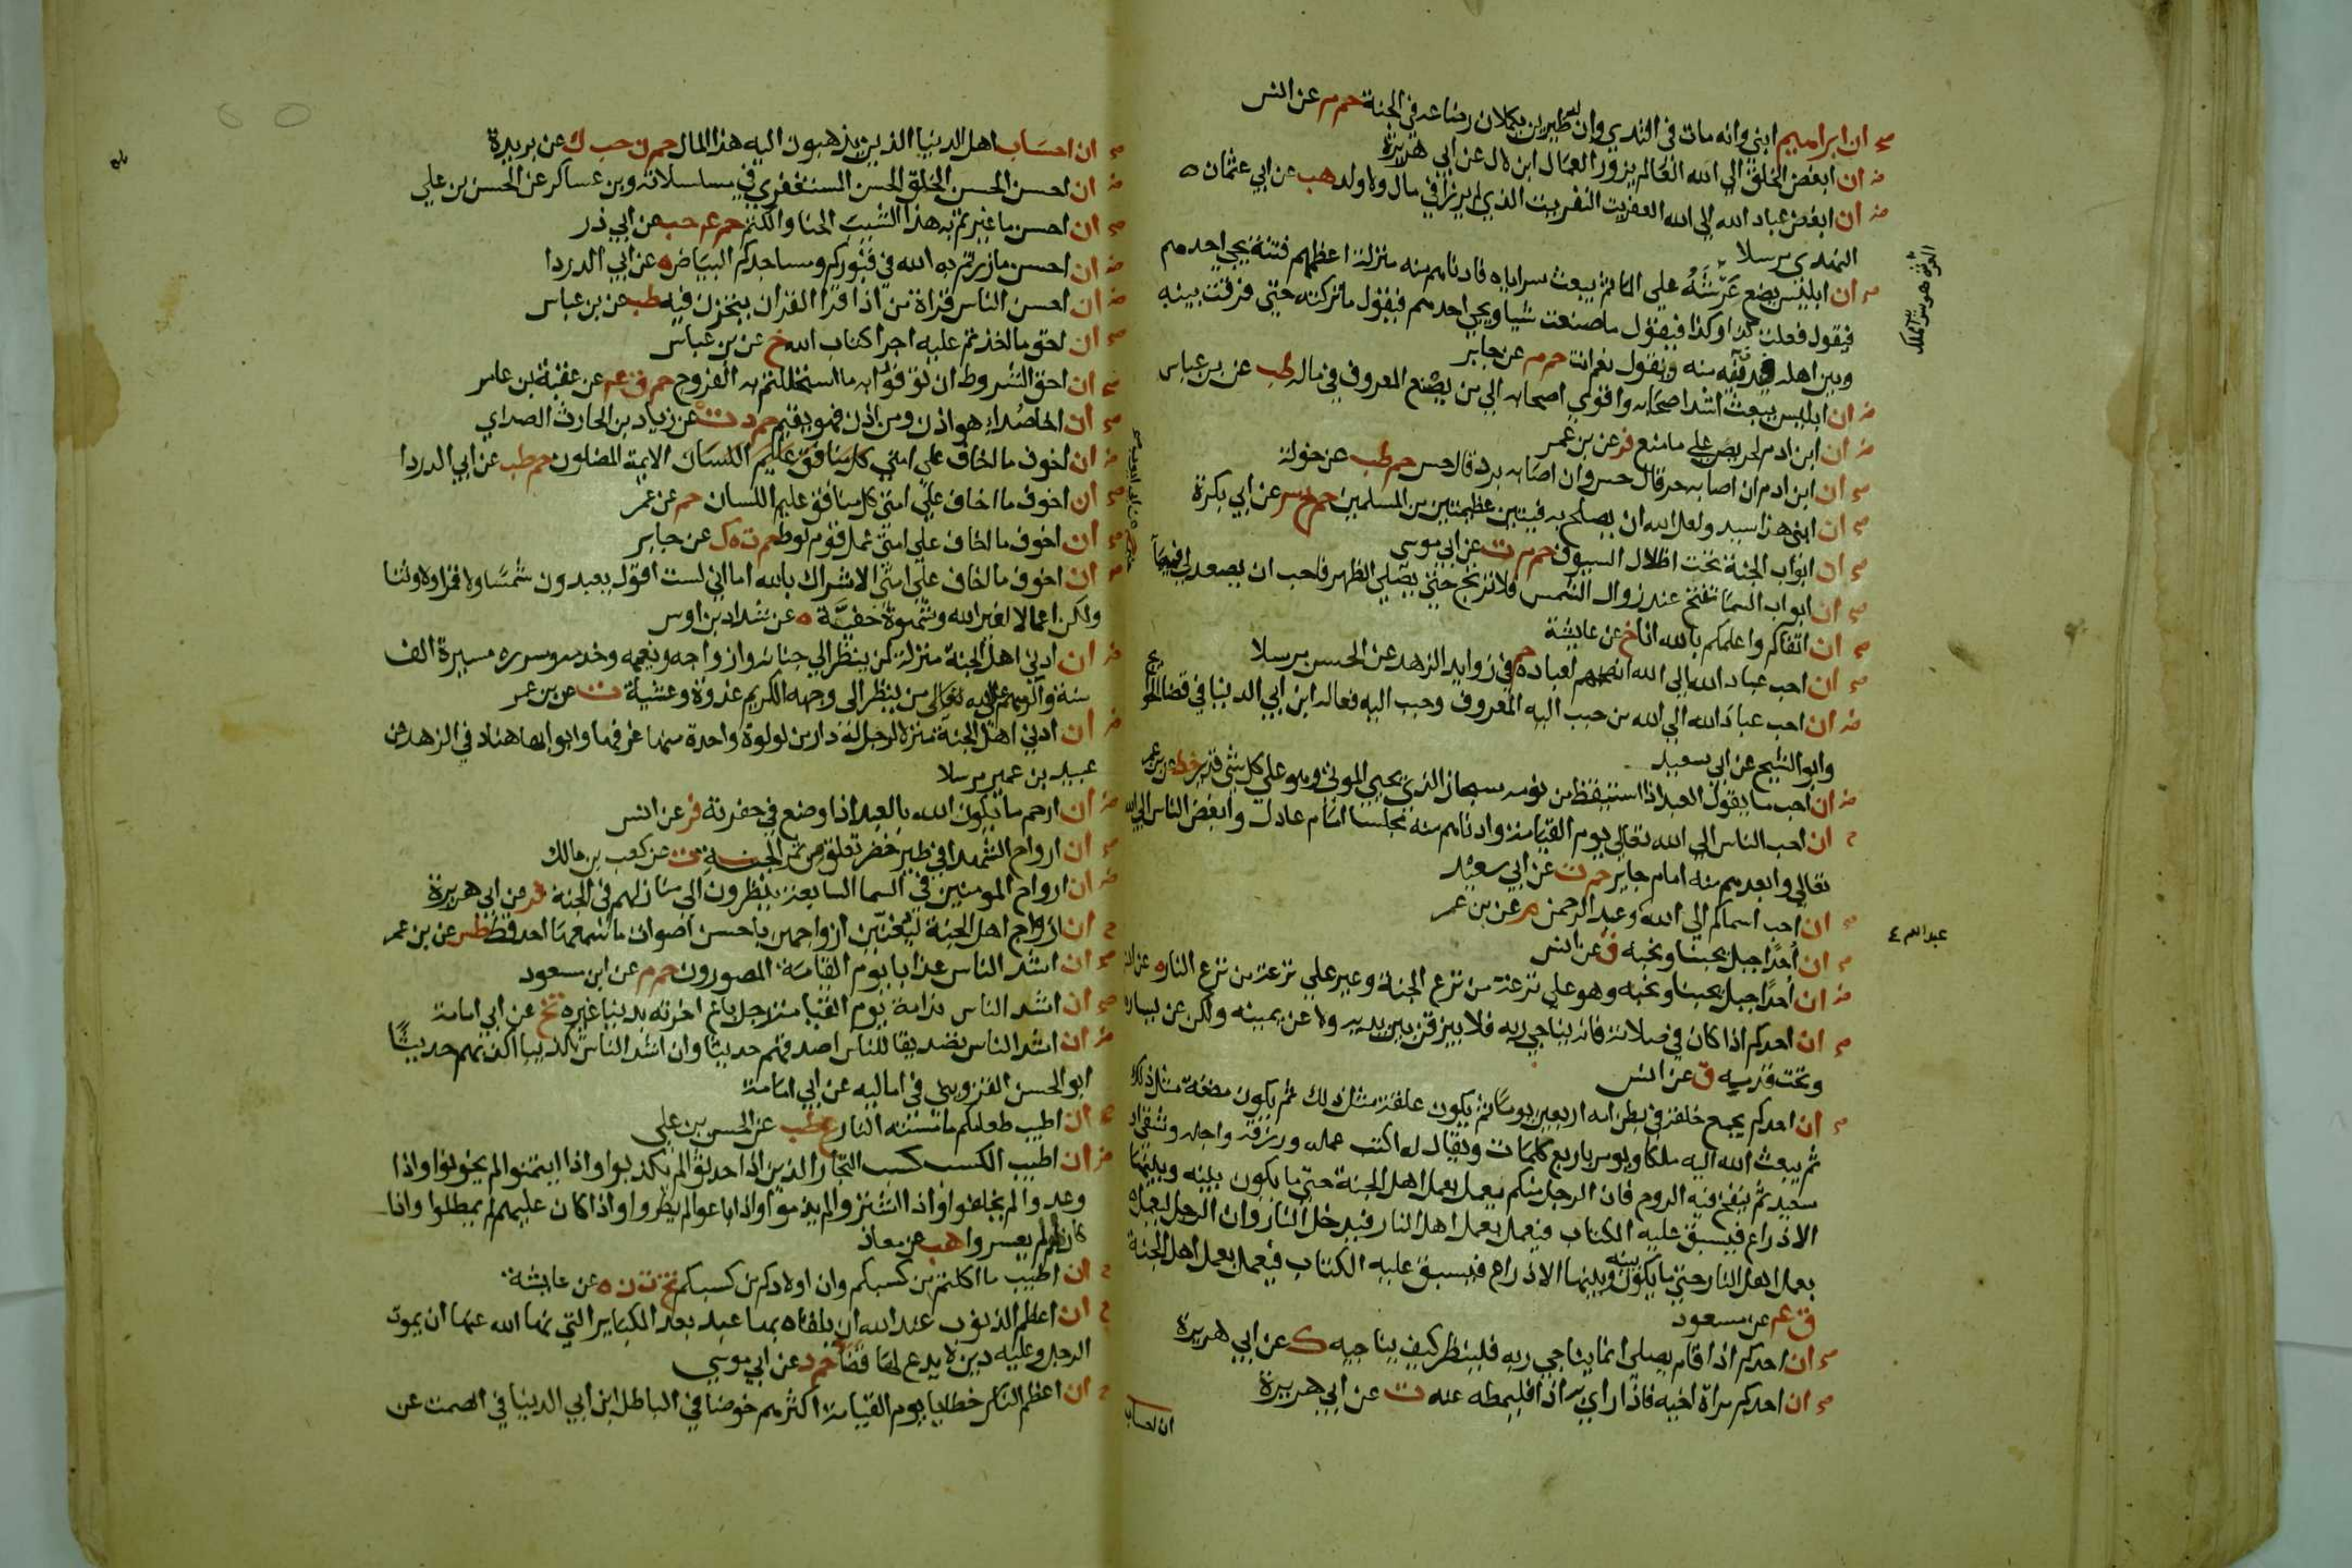 صح ان ابراهيم ابني وانه مات في الثدي وان له ظيرين يكملان رضاعه في الجنة حم م عن انس
ض ان ابغض الخلق الي الله العالم يزور العمال ابن لال عن ابي هريرة
ض ان ابغض عباد الله الي الله العفريت النفريت الذي لم يرزا في مال ولا ولد هب عن ابي عثمان
النهدي مرسلا
صح ان ابليس يضع عرشه علي الما ثم يبعث سراياه فادناهم منه منزلة اعظمهم فتنة يجي احدهم
فيقول فعلت كذا وكذا فيقول ما صنعت شيا ويجي احدهم فيقول ما تركته حتي فرقت بينه
وبين اهله فيدنيه منه ويقول نعم انت حم م عن جابر
ض ان ابليس يبعث اشد اصحابه واقوي اصحابه الي من يصنع المعروف في ماله طب عن بن عباس
ض ان ابن ادم لحريص علي ما منع فر عن بن عمر
صح ان ابن ادم ان اصابه حر قال حس وان اصابه برد قال حس حم طب عن خولة
صح ان ابني هذا سيد ولعل الله ان يصلح به فيتين عظيمتين من المسلمين حم خ عن ابي بكرة
صح ان ابواب الجنة تحت اظلال السيوف حم م ت عن ابي موسي
صح ان ابواب السما تفتح عند زوال الشمس فلا ترتج حتي يصلي الظهر فاحب ان يصعد لي فيها
صح ان اتقاكم واعلمكم بالله انا خ عن عايشة
صح ان احب عباد الله الي الله انصحهم لعباده حم في زوايد الزهد عن الحسن مرسلا
ض ان احب عباد الله الي الله من حبب اليه المعروف وحبب اليه فعاله ابن ابي الدنيا في قضا الحوايج
وابو الشيخ عن ابي سعيد
ض ان احب ما يقول العبد اذا استيقظ من نومه سبحان الذي يحيي الموتي وهو علي كل شي قدير خط عن بن عمر
ان احب الناس الي الله تعالي يوم القيامة وادناهم منه مجلسا امام عادل وابغض الناس الي الله
تعالي وابعدهم منه امام جاير حم ت عن ابي سعيد
ان احب اسماكم الي الله وعبد الرحمن م عن بن عمر
عبد الله
صح ان أحدًا جبل يحبنا ونحبه ق عن انس
ض ان أحدًا جبل يحبنا ونحبه وهو علي ترعة من ترع الجنة وعير علي ترعة من ترع النار ه عن انس
صح ان احدكم اذا كان في صلاته فانه يناجي ربه فلا يبزقن بين يديه ولا عن يمينه ولكن عن يساره
وتحت قدميه ق عن انس
صح ان احدكم يجمع خلقه في بطن امه اربعين يوما ثم يكون علقة مثل ذلك ثم يكون مضغة مثل ذلك
ثم يبعث الله اليه ملكا ويومر باربع كلمات ويقال له اكتب عمله ورزقه واجله وشقي او
سعيد ثم ينفخ فيه الروح فان الرجل منكم ليعمل بعمل اهل الجنة حتي ما يكون بينه وبينها
الا ذراع فيسبق عليه الكتاب فيعمل بعمل اهل النار فيدخل النار وان الرجل ليعمل
بعمل اهل النار حتي ما يكون بينه وبينها الا ذراع فيسبق عليه الكتاب فيعمل بعمل اهل الجنة
ق عن مسعود
صح ان احدكم اذا قام يصلي انما يناجي ربه فلينظر كيف يناجيه ك عن ابي هريرة
صح ان احدكم مراة اخيه فاذا راي به اذا فليمطه عنه ت عن ابي هريرة
ان احساب
صح ان احساب اهل الدنيا الذين يذهبون اليه هذا المال حم ن حب ك عن بريدة
ض ان احسن الحسن الخلق الحسن المستغفري في مسلسلاته وبن عساكر عن الحسن بن علي
صح ان احسن ما غيرتم به هذا الشيب الحنا والكتم حم عه حب عن ابي ذر
ض ان احسن ما زرتم به الله في قبوركم ومساجدكم البياض ه عن ابي الدردا
ض ان احسن الناس قراة من اذا قرا القران يتحزن فيه طب عن بن عباس
صح ان احق ما اخذتم عليه اجرا كتاب الله خ عن بن عباس
صح ان احق الشروط ان توفوا به ما استحللتم به الفروج حم ق عه عن عقبة بن عامر
صح ان اخا صداء هو اذن ومن اذن فهو يقيم حم د ت عن زياد بن الحارث الصداي
ض ان اخوف ما اخاف علي امتي الايمة المضلون حم طب عن ابي الدردا
صح ان اخوف ما اخاف علي امتي كل منافق عليم اللسان حم عن عمر
صح ان اخوف ما اخاف علي امتي عمل قوم لوط حم ت ه ك عن جابر
ان اخوف ما اخاف علي امتي الاشراك بالله اما اني لست اقول يعبدون شمسا ولا قمرا ولا وثنا
ولكن اعمالا لغير الله وشهوة خفيَّة ه عن شداد بن اوس
ض ان ادني اهل الجنة منزلة لمن ينظر الي جنانه وازواجه ونعيمه وخدمه وسرره مسيرة الف
سنة واكرمهم علي الله تعالي من ينظر الي وجهه الكريم غدوة وعشية ت عن بن عمر
ض ان ادني اهل الجنة منزلا لرجل له دار من لولوة واحدة منها غرفها وابوابها هناد في الزهد عن
عبيد بن عمير مرسلا
ض ان ارحم ما يكون الله بالعبد اذا وضع في حفرته فر عن انس
صح ان ارواح الشهدا في طير خضر تعلق من ثمر الجنة ت عن كعب بن مالك
ض ان ارواح المومنين في السما السابعة ينظرون الي منازلهم في الجنة فر عن ابي هريرة
ان ازواج اهل الجنة ليغنين ازواجهن باحسن اصوات ما سمعها احد قط طس عن بن عمر
صح ان اشد الناس عذابا يوم القيامة المصورون حم م عن ابن مسعود
صح ان اشد الناس ندامة يوم القيامة رجل باع اخرته بدنيا غيره تخ عن ابي امامة
ض ان اشد الناس تصديقا للناس اصدقهم حديثا وان اشد الناس تكذيبا اكذبهم حديثًا
ابو الحسن القزويني في اماليه عن ابي امامة
ان اطيب طعامكم ما مسته النار ع طب عن الحسن بن علي
ض ان اطيب الكسب كسب التجار الذين اذا حدثوا لم يكذبوا واذا ايتمنوا لم يخونوا واذا
وعدوا لم يخلفوا واذا اشتروا لم يذموا واذا باعوا لم يطروا واذا كان عليهم لم يمطلوا واذا
كان لهم لم يعسروا هب عن معاذ
ان اطيب ما اكلتم من كسبكم وان اولادكم من كسبكم تخ ت ن ه عن عايشة
ان اعظم الذنوب عند الله ان يلقاه بها عبد بعد الكباير التي نها الله عنها ان يموت
الرجل وعليه دين لا يدع لها قضا حم د عن ابي موسي
ان اعظم الناس خطايا يوم القيامة اكثرهم خوضا في الباطل ابن ابي الدنيا في الصمت عن